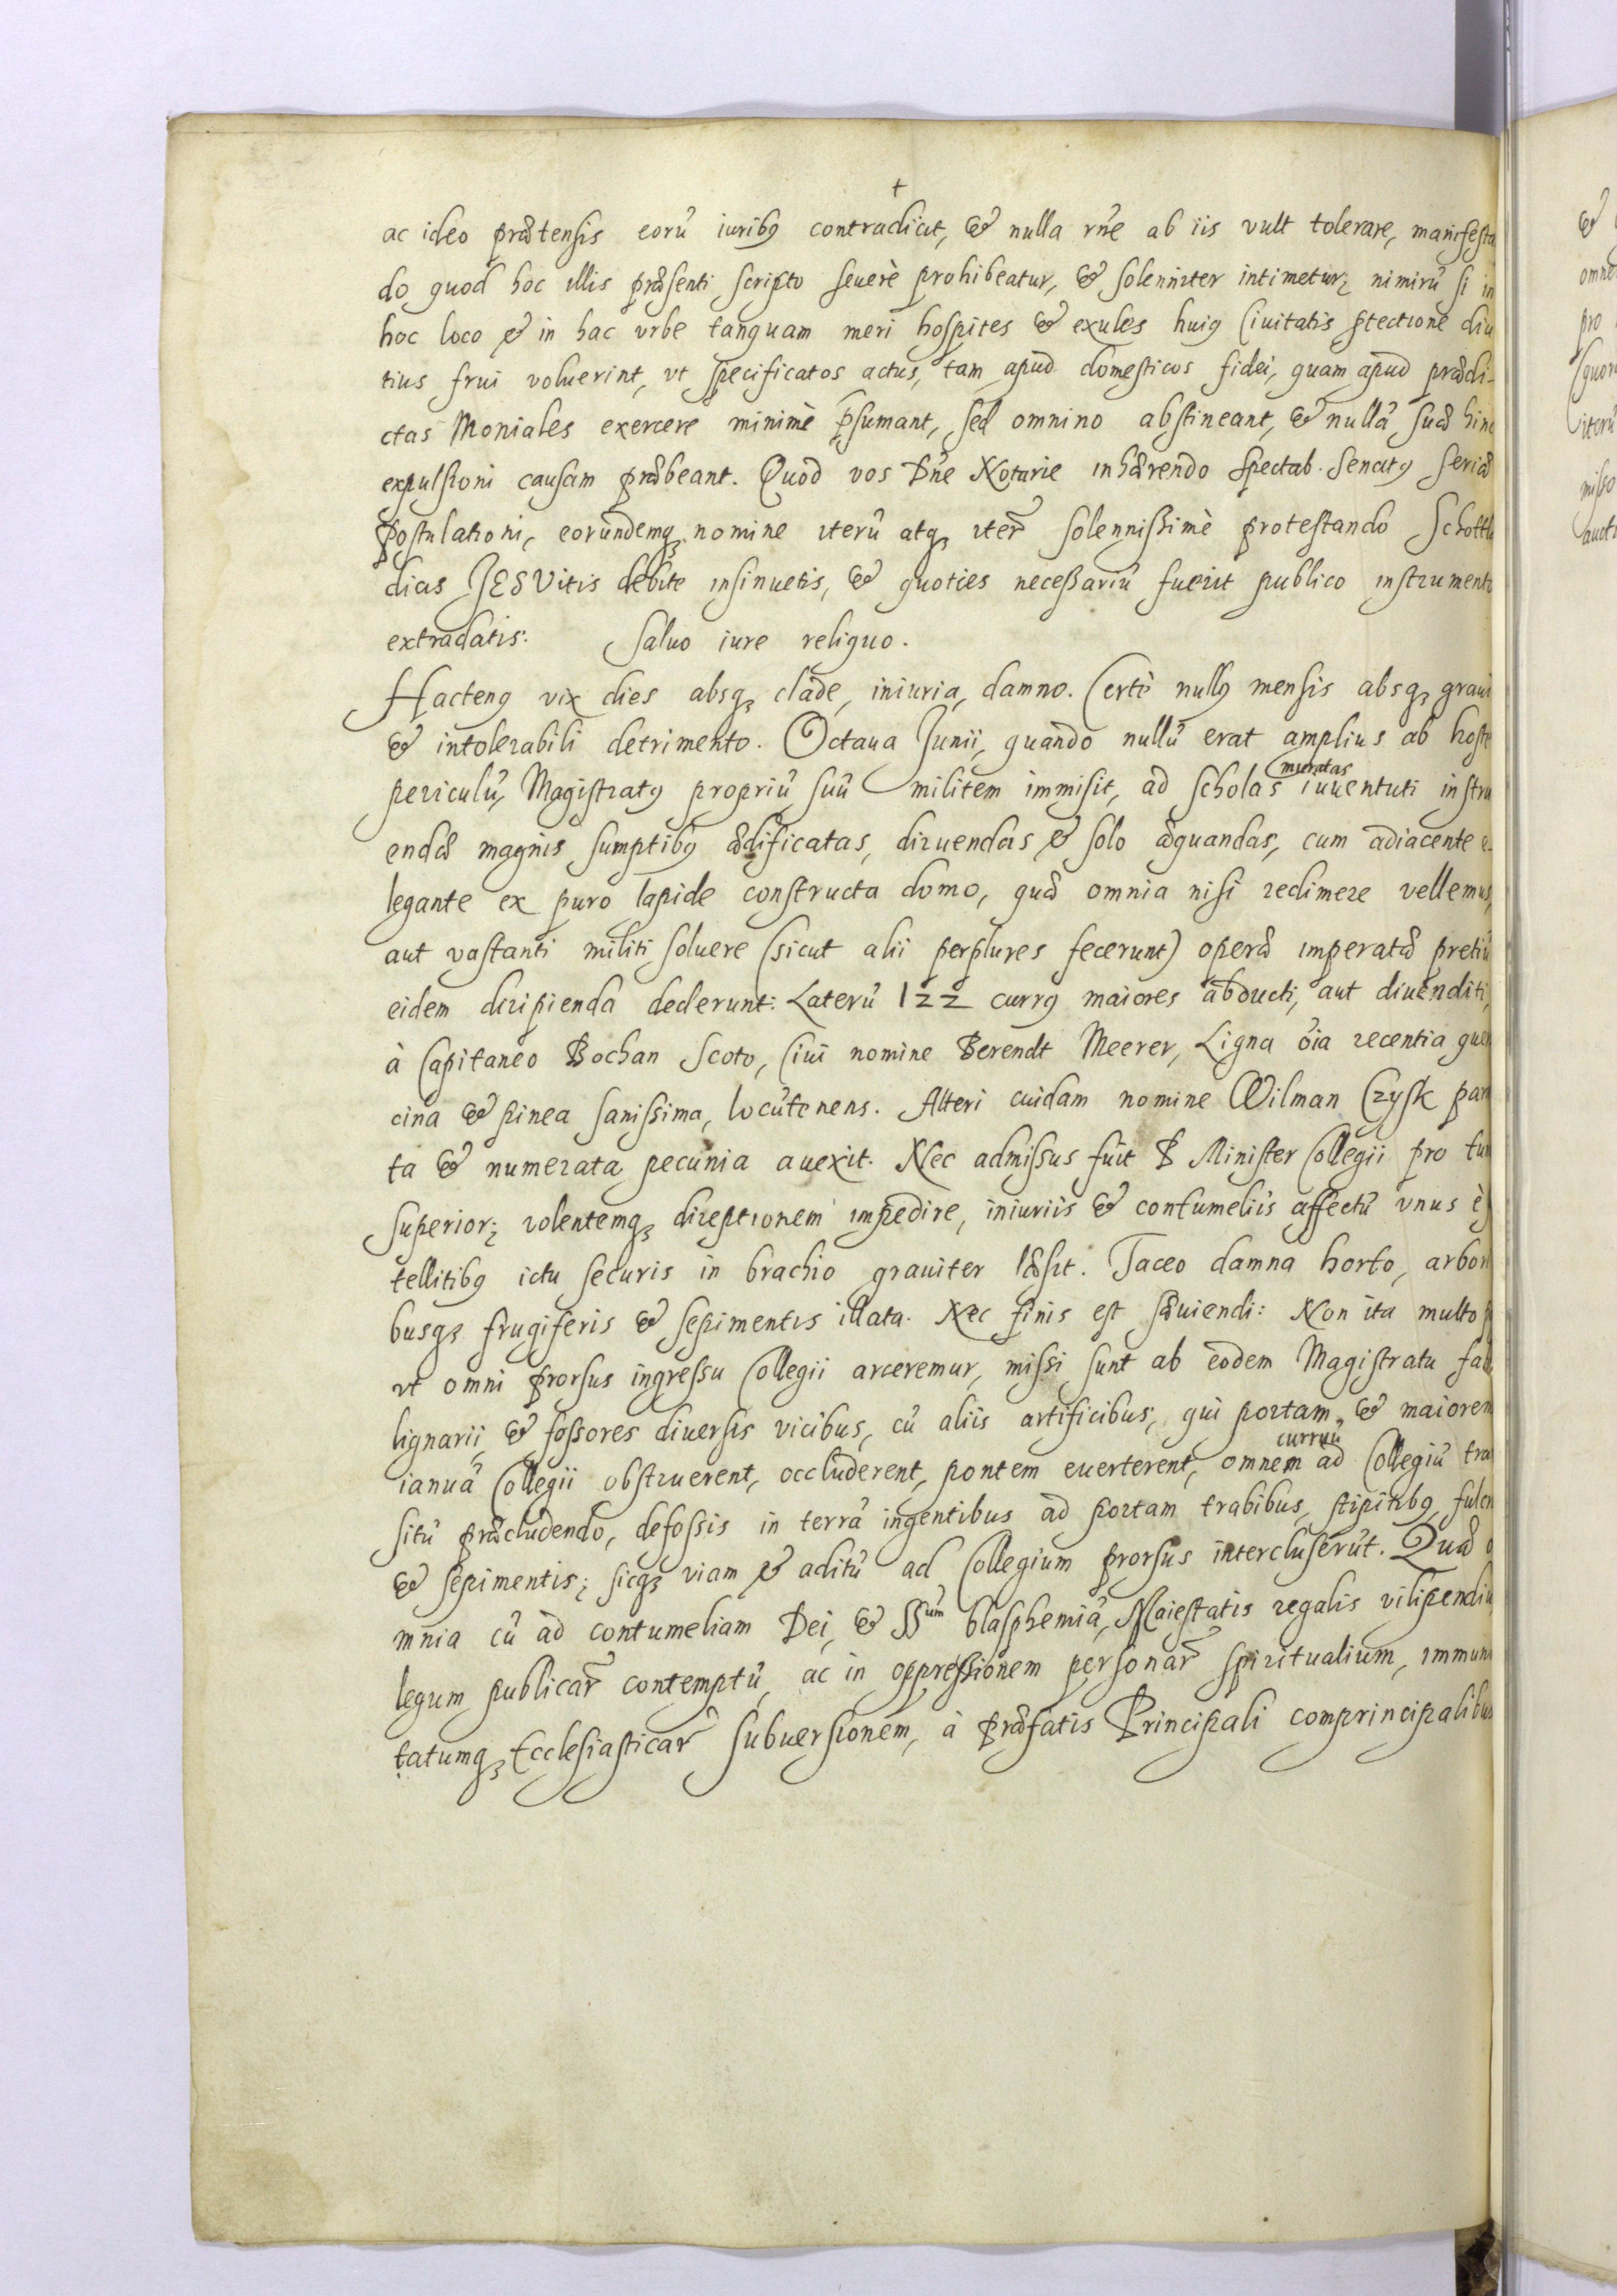 †
ac ideo prætensis eorū iuribꝰ contradicit, & nulla rñe ab iis vult tolerare, manifesta
do quod hoc illis præsenti scripto seuerè prohibeatur, & solenniter intimetur; nimirū si in
hoc loco & in hac vrbe tanquam meri hospites & exules huiꝰ Ciuitatis ꝓtectione diu
tius frui voluerint, vt specificatos actus, tam apud domesticos fidei, quam apud prædi-
ctas Moniales exercere minimè p̄sumant, sed omnino abstineant, & nullā suæ hinc
expulsioni causam præbeant. Quod vos Dn̄e Notarie inhærendo Spectab. Senatꝰ seriæ
postulationi, eorundemqꝫ nomine iterū atqꝫ iter̄ solennissimè protestando Schottl
dicis JESVitis debite insinuetis, & quoties necessariū fuerit publico instrumento
extradatis. Saluo iure reliquo.
Hactenꝰ vix dies absqꝫ clade, iniuria, damno. Certè nullꝰ mensis absqꝫ graui
& intolerabili detrimento. Octaua Junii, quando nullū erat amplius ab hoste
periculū, Magistratꝰ propriū suū militem immisit, ad scholas iuuentuti instru
muratas
endæ magnis sumptibꝰ ædificatas, diruendas & solo æquandas, cum adiacente e-
legante ex puro lapide constructa domo, quæ omnia nisi redimere vellemus,
aut vastanti militi soluere (sicut alii perplures fecerunt) operæ imperatæ pretiū
eidem diripienda dederunt: Laterū 122 currꝰ maiores abducti, aut diuenditi,
à Capitaneo Bochan Scoto, Ciui nomine Berendt Meerer, Ligna õia recentia quer
cina & pinea sanissima, locūtenens. Alteri cuidam nomine Wilman Czysk par
ta & numerata pecunia auexit. Nec admissus fuit P Minister Collegii pro tun
superior; volentemqꝫ direptionem impedire, iniuriis & contumeliis affectū vnus è
tellitibꝰ ictu securis in brachio grauiter læsit. Taceo damna horto, arbori
busqꝫ frugiferis & sepimentis illata. Nec finis est sæuiendi: Non ita multo p
vt omni prorsus ingressu Collegii arceremur, missi sunt ab eodem Magistratu fab
lignarii, & fossores diuersis vicibus, cū aliis artificibus, qui portam, & maiorem
ianuā Collegii obstruerent, occluderent, pontem euerterent, omnem ad Collegiū tra
curruū
sitū præcludendo, defossis in terrā ingentibus ad portam trabibus, stipitibꝰ, fulcr
& sepimentis; sicqꝫ viam & aditū ad Collegium prorsus intercluserūt. Quæ o
mnia cū ad contumeliam Dei, & SSum blasphemiā, Maiestatis regalis vilipendiu
legum publicar̄ contemptū, ac in oppressionem personar̄ spiritualium, immuni
tatumqꝫ Ecclesiasticar̄ subuersionem, à præfatis Principali comprincipalibus